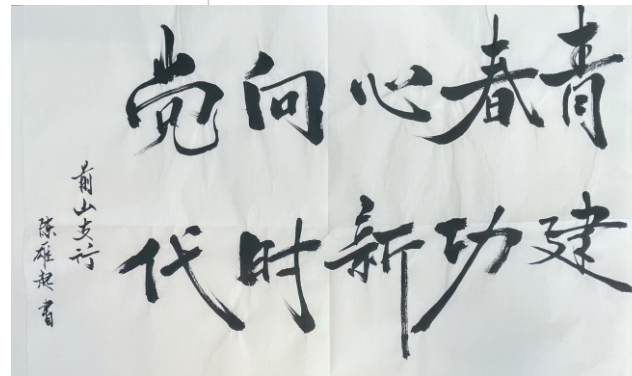 青春心向党
建功新时代
前山支行
陈雄起書